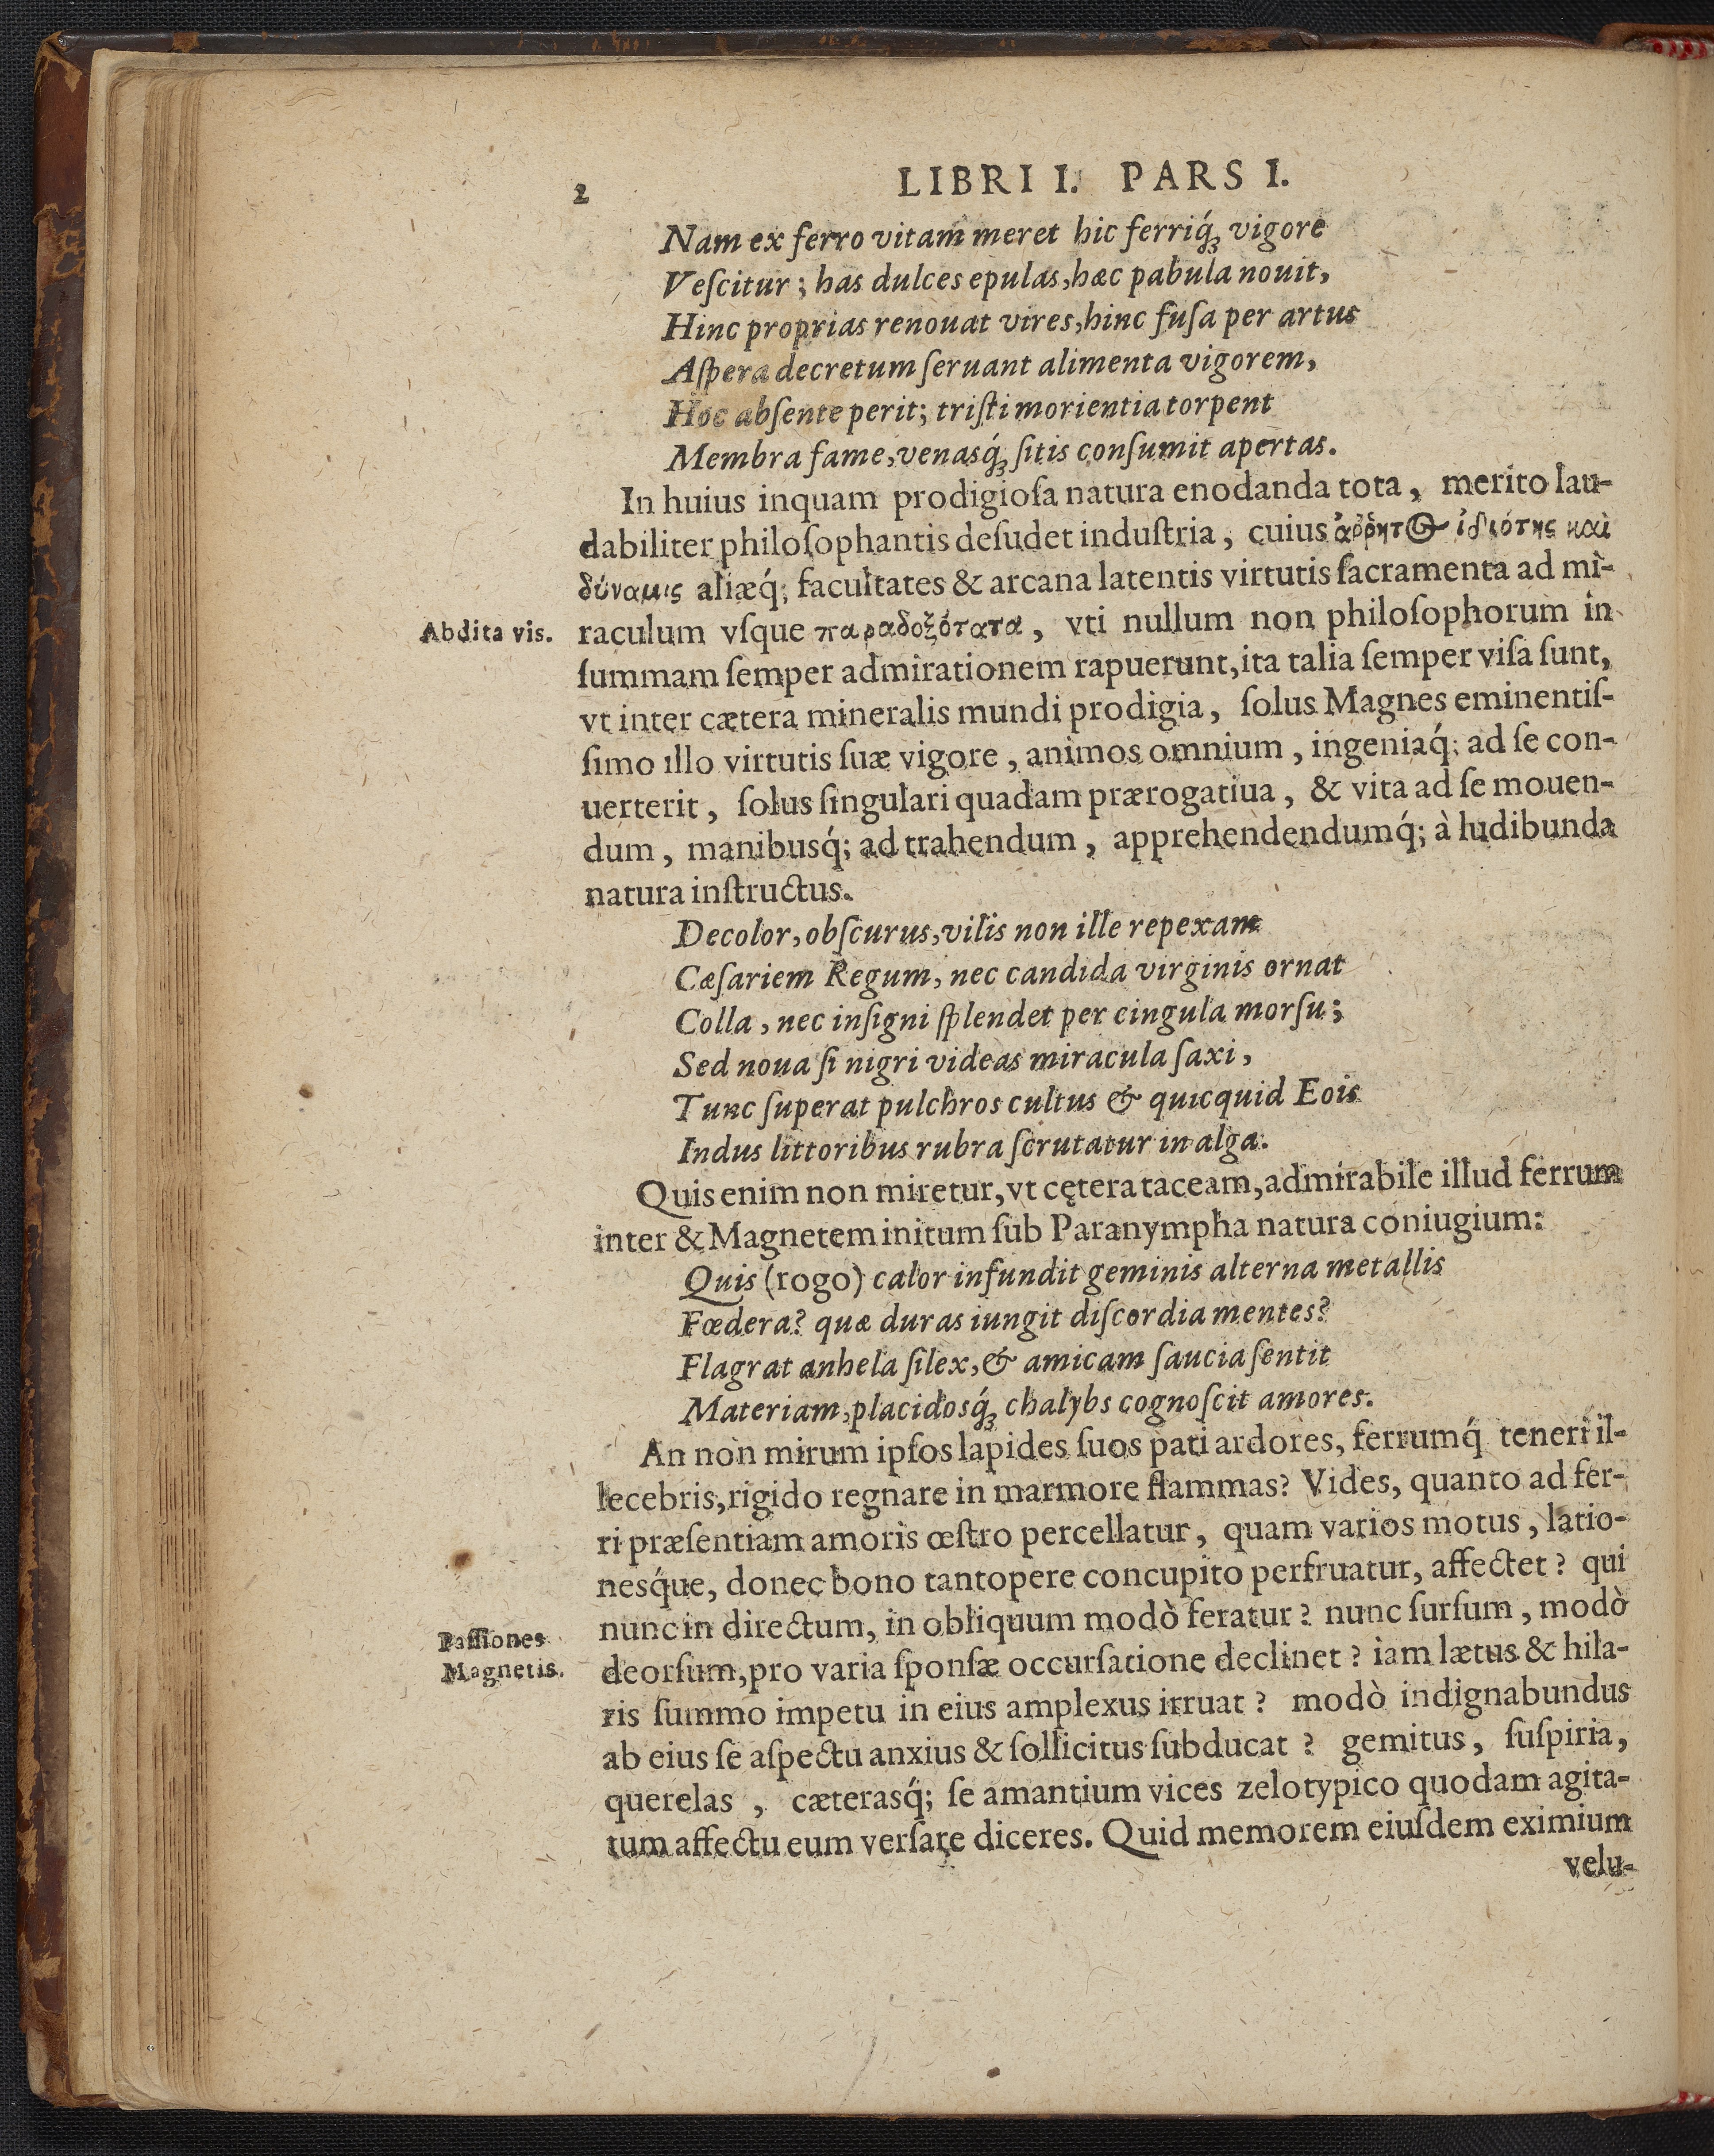 2
LIBRI I. PARS I.
Nam ex ferro vitam meret hic ferriq́ꝫ vigore
Veſcitur; has dulces epulas, hæc pabula nouit,
Hinc proprias renouat vires, hinc fuſa per artus
Aſpera decretum ſeruant alimenta vigorem,
Hoc abſente perit; triſti morientia torpent
Membra fame, venasq́ꝫ ſitis conſumit apertas.
In huius inquam prodigioſa natura enodanda tota, merito lau-
dabiliter philoſophantis deſudet induſtria, cuius ἄῤῥητος ἰδιότης καὶ
δύναμις aliæq́; facultates & arcana latentis virtutis ſacramenta ad mi-
Abdita vis.
raculum vſque παραδοξότατα, vti nullum non philoſophorum in
ſummam ſemper admirationem rapuerunt, ita talia ſemper viſa ſunt,
vt inter cætera mineralis mundi prodigia, ſolus Magnes eminentiſ-
ſimo illo virtutis ſuæ vigore, animos omnium, ingeniaq́; ad ſe con-
uerterit, ſolus ſingulari quadam prærogatiua, & vita ad ſe mouen-
dum, manibusq́; ad trahendum, apprehendendumq́; à ludibunda
natura inſtructus.
Decolor, obſcurus, vilis non ille repexam
Cæſariem Regum, nec candida virginis ornat
Colla, nec inſigni ſplendet per cingula morſu;
Sed noua ſi nigri videas miracula ſaxi,
Tunc ſuperat pulchros cultus & quicquid Eois
Indus littoribus rubra ſcrutatur in alga.
Quis enim non miretur, vt cętera taceam, admirabile illud ferrum
inter & Magnetem initum ſub Paranympha natura coniugium:
Quis (rogo) calor infundit geminis alterna metallis
Fœdera? quæ duras iungit diſcordia mentes?
Flagrat anhela ſilex, & amicam ſaucia ſentit
Materiam, placidosq́ꝫ chalybs cognoſcit amores.
An non mirum ipſos lapides ſuos pati ardores, ferrumq́ teneri il-
lecebris, rigido regnare in marmore flammas? Vides, quanto ad fer-
ri præſentiam amoris œſtro percellatur, quam varios motus, latio-
nesq́ue, donec bono tantopere concupito perfruatur, affectet? qui
nunc in directum, in obliquum modò feratur? nunc ſurſum, modò
Paſſiones
Magnetis.
deorſum, pro varia ſponſæ occurſatione declinet? iam lætus & hila-
ris ſummo impetu in eius amplexus irruat? modò indignabundus
ab eius ſe aſpectu anxius & ſollicitus ſubducat? gemitus, ſuſpiria,
querelas, cæterasq́; ſe amantium vices zelotypico quodam agita-
tum affectu eum verſare diceres. Quid memorem eiuſdem eximium
velu-